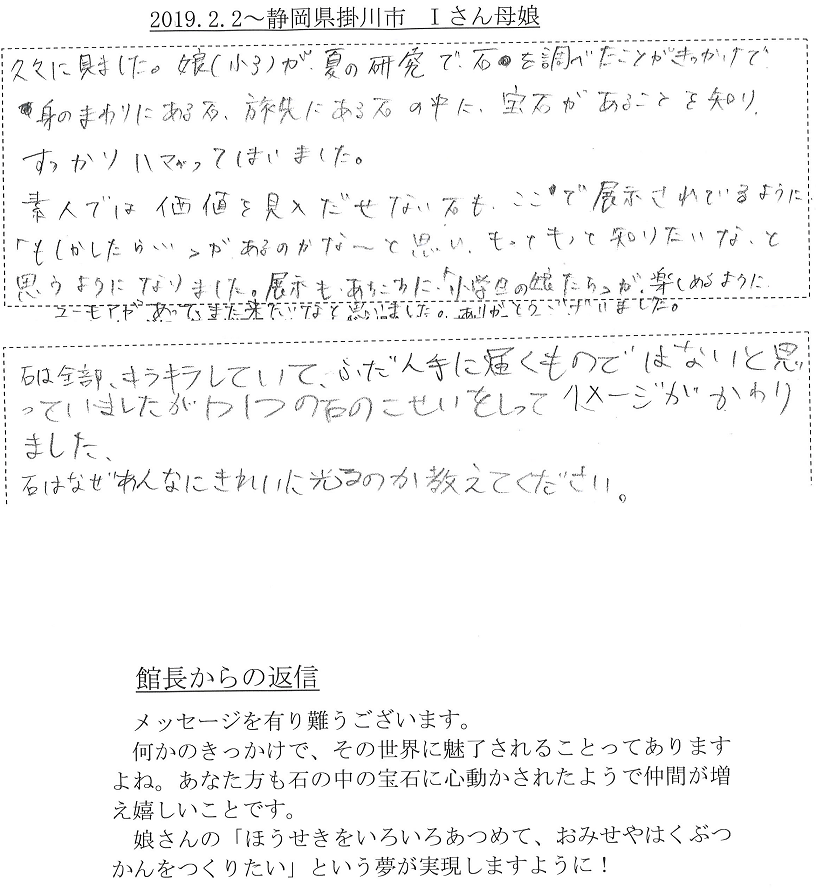 2019.2.2～静岡県掛川市　Ｉさん母娘
久々に見ました。娘(小3)が、夏の研究で、石を調べたことがきっかけで
身のまわりにある石、旅先にある石の中に、宝石があることを知り、
すっかりハマってしまいました。
素人では価値を見いだせない石も、ここで展示されているように
「もしかしたら…」があるのかな～と思い、もっともっと知りたいな、と
思うようになりました。展示も、あちこちに、「小学生の娘たち」が、楽しめるように
ユーモアがあって、また来たいなと思いました。ありがとうございました。
石は全部、キラキラしていて、ふだん手に届くものではないと思
っていましたが1つ1つの石のこせいをしってイメージがかわり
ました、
石はなぜあんなにきれいに光るのか教えてください。
館長からの返信
メッセージを有り難うございます。
何かのきっかけで、その世界に魅了されることってあります
よね。あなた方も石の中の宝石に心動かされたようで仲間が増
え嬉しいことです。
娘さんの「ほうせきをいろいろあつめて、おみせやはくぶつ
かんをつくりたい」という夢が実現しますように！